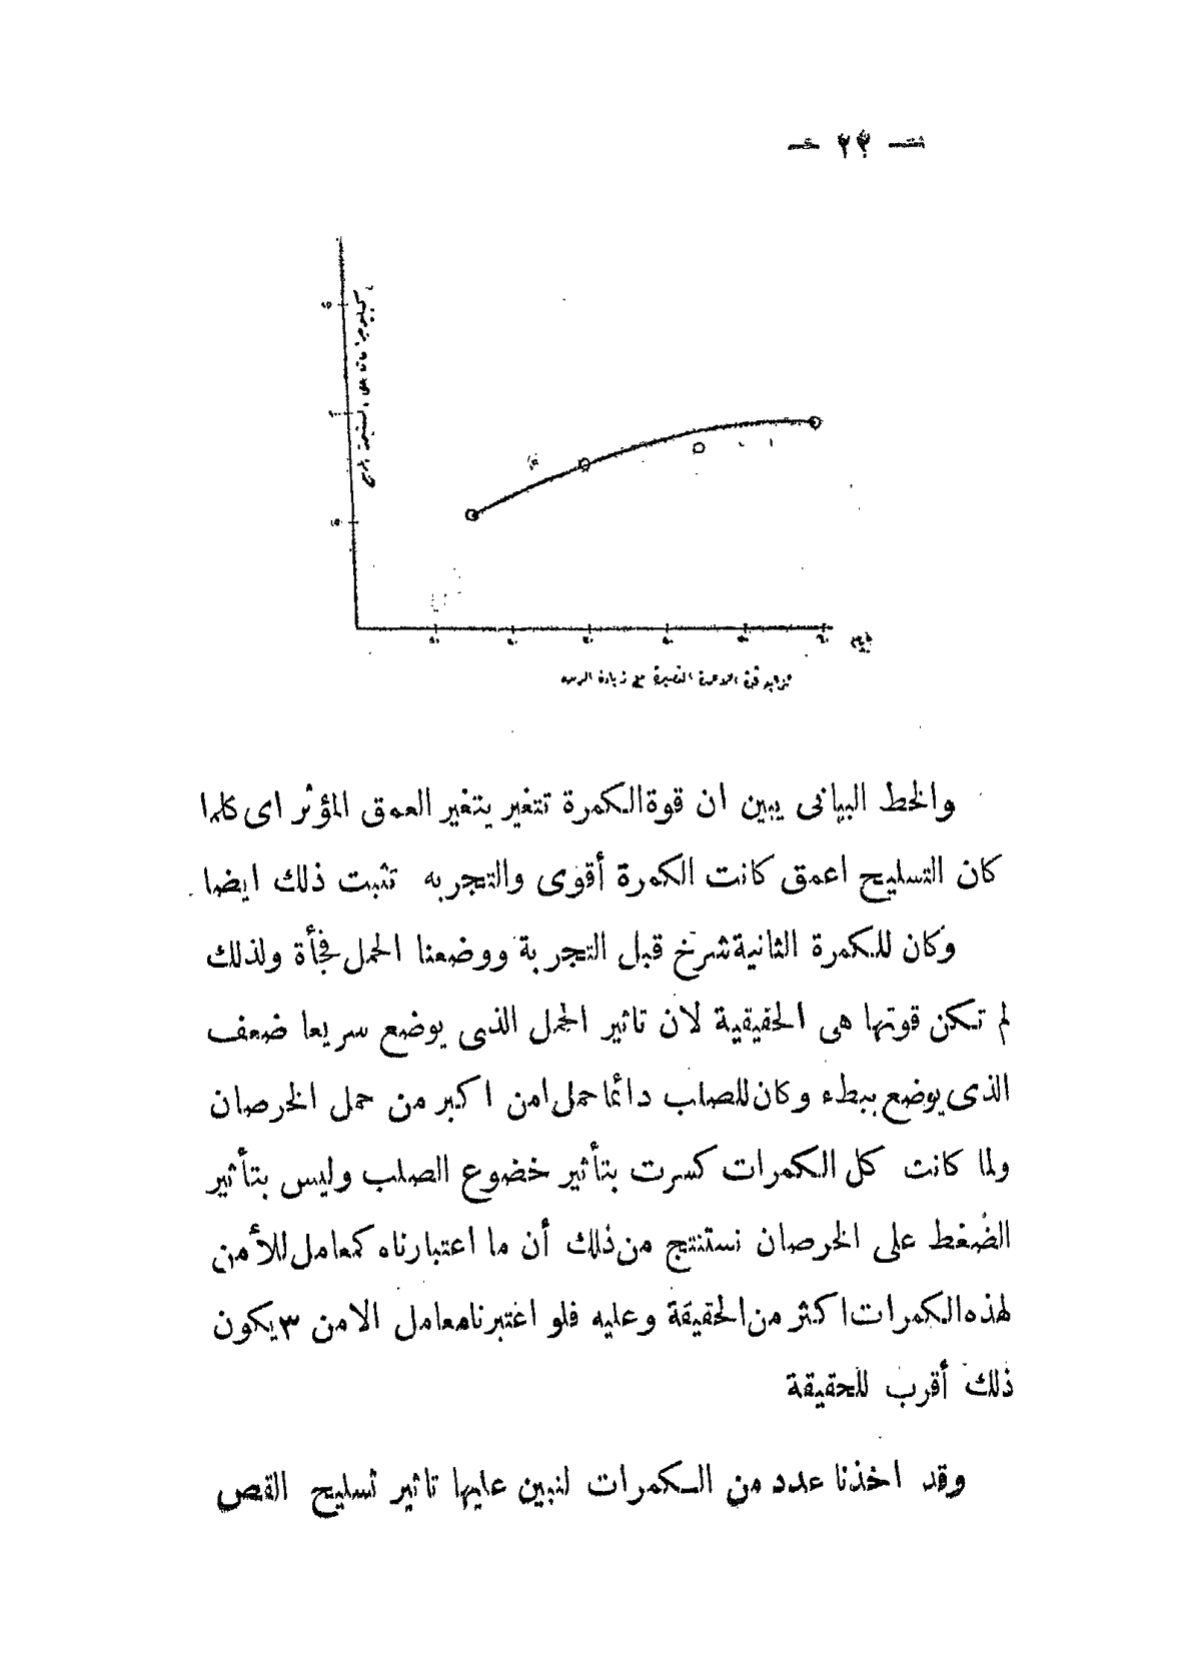 والخط البيانى يبين ان قوة الكمرة تتغير بتغير العمق المؤثر اى كلما
كان التسليح اعمق كانت الكمرة أقوى والتجربه تثبت ذلك ايضا .
وكان للكمرة الثانية شرخ قبل التجربة ووضعنا الحمل فجأة ولذلك
لم تكن قوتها هى الحقيقية لان تاثير الحمل الذى يوضع سريعا ضعف
الذى يوضع ببطء وكان للصلب دائما حمل امن اكبر من حمل الخرصان
ولما كانت كل الكمرات كسرت بتأثير خضوع الصلب وليس بتأثير
الضغط على الخرصان نستنتج من ذلك أن ما اعتبارناه كمعامل للأمن
لهذه الكمرات اكثر من الحقيقة وعليه فلو اعتبرنا معامل الامن ٣ يكون
ذلك أقرب للحقيقة
وقد اخذنا عدد من الكمرات لنبين عليها تاثير تسليح القص